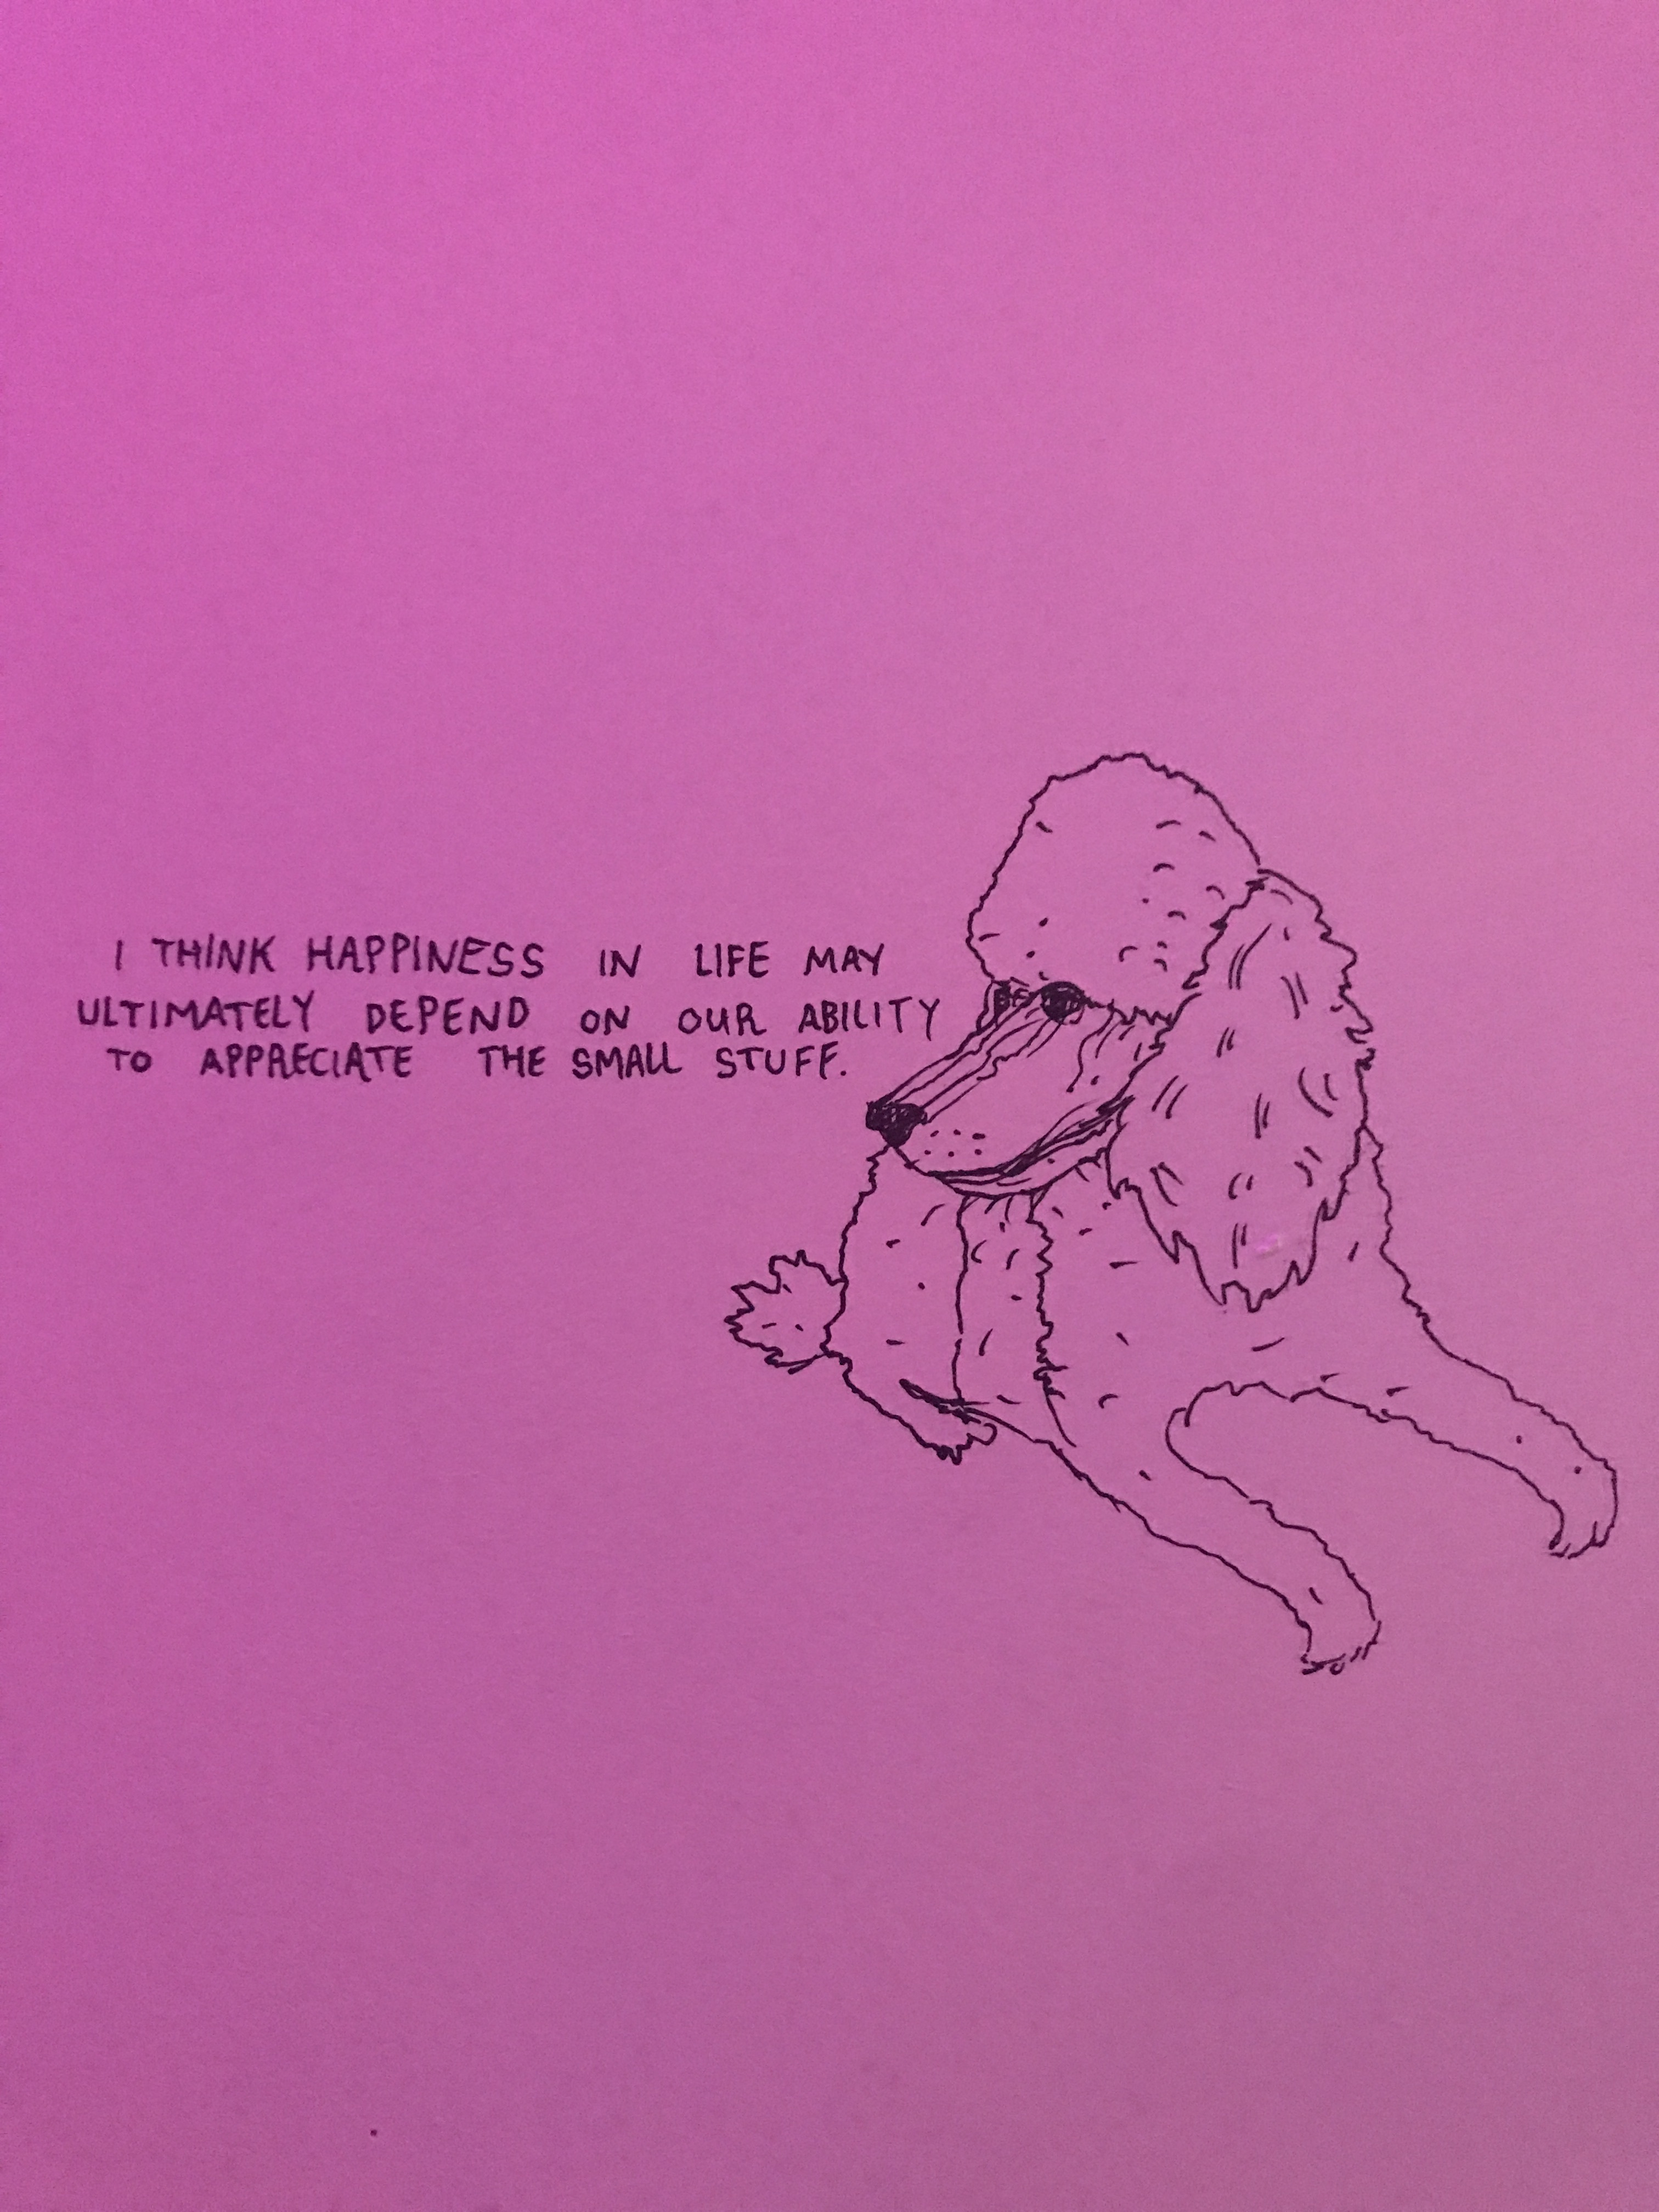 I THINK HAPPINESS IN LIFE MAY
ULTIMATELY DEPEND ON OUR ABILITY
TO APPRECIATE THE SMALL STUFF.